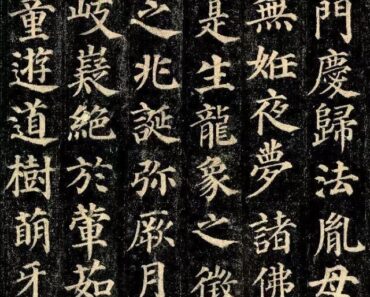 門慶歸法胤母
無姙夜夢諸佛
是生龍象之徵
之兆誕弥厥月
岐嶷絕於葷茹
童遊道樹萌牙